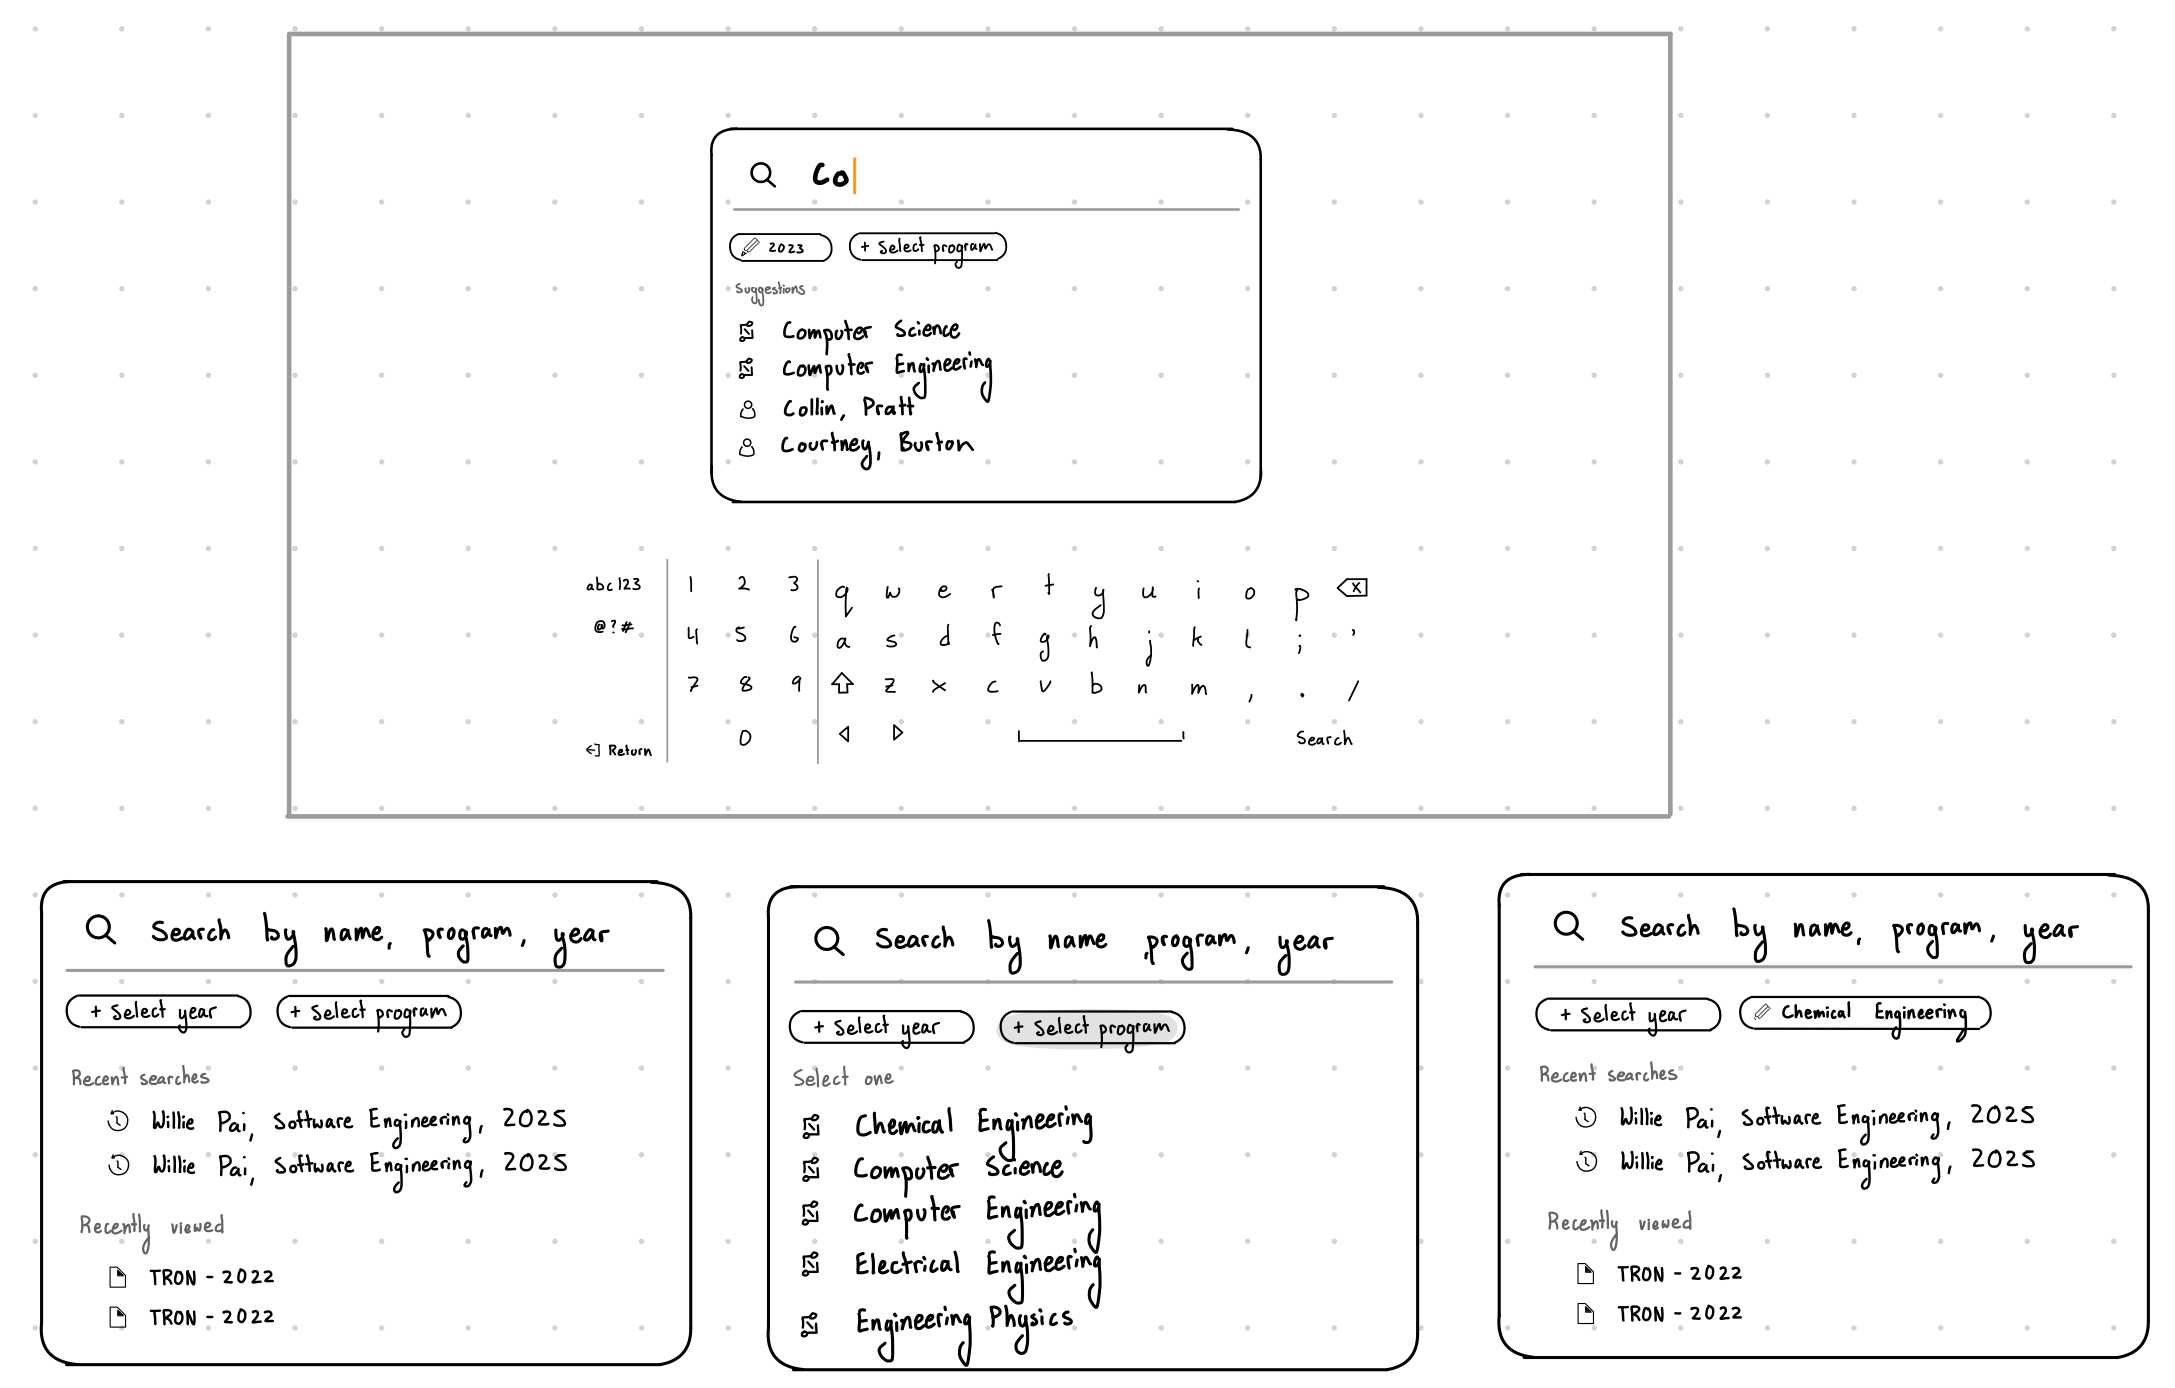 Co
2023 + Select program
Suggestions
Computer Science
Computer Engineering
Collin, Pratt
Courtney, Burton
abc123 1 2 3 q w e r t y u i o p x
@?# 4 5 6 a s d f g h j k l ; '
7 8 9 z x c v b n m , . /
Return 0 Search
Search by name, program, year
+ Select year + Select program
Recent searches
Willie Pai, Software Engineering, 2025
Willie Pai, Software Engineering, 2025
Recently viewed
TRON - 2022
TRON - 2022
Search by name ,program, year
+ Select year + Select program
Select one
Chemical Engineering
Computer Science
Computer Engineering
Electrical Engineering
Engineering Physics
Search by name, program, year
+ Select year Chemical Engineering
Recent searches
Willie Pai, Software Engineering, 2025
Willie Pai, Software Engineering, 2025
Recently viewed
TRON - 2022
TRON - 2022